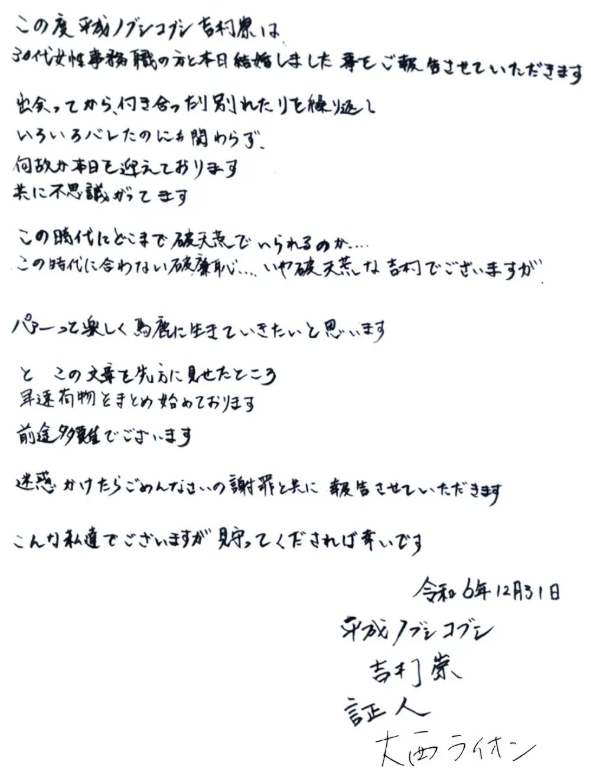 この度平成ノブシコブシ吉村崇は
30代女性事務職の方と本日結婚しました事をご報告させていただきます
出会ってから、付き合ったり別れたりを繰り返し
いろいろバレたのにも関わらず、
何故か本日を迎えております
共に不思議がってます
この時代にどこまで破天荒でいられるのか....
この時代に合わない破廉恥....いや破天荒な吉村でございますが
パァーっと楽しく馬鹿に生きていきたいと思います
と この文章を先方に見せたところ
早速荷物をまとめ始めております
前途多難でございます
迷惑かけたらごめんなさいの謝罪と共に 報告させていただきます
こんな私達でございますが見守ってくだされば幸いです
令和6年12月31日
平成ノブシコブシ
吉村崇
証人
大西ライオン